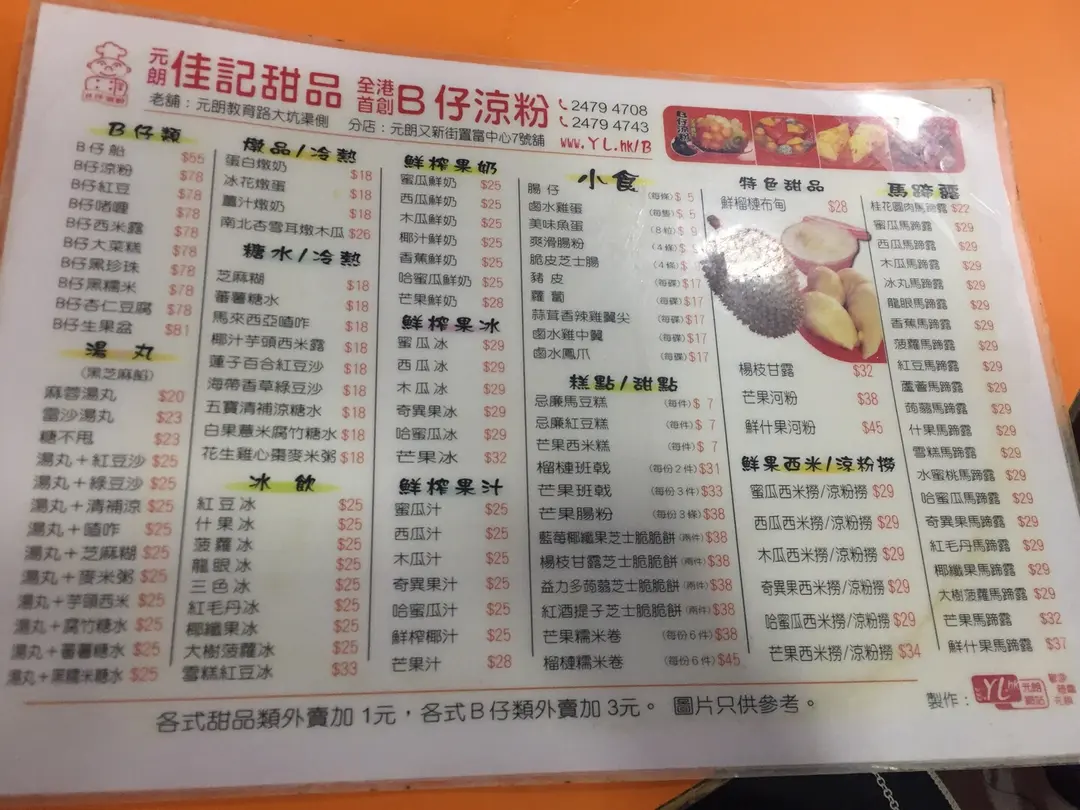 元朗 佳記甜品 全港首創 B仔涼粉 2479 4708
2479 4743
老舖：元朗教育路大坑渠側 分店：元朗又新街置富中心7號舖 www.YL.hk/B
B仔涼粉
B仔類
B仔船 $55
B仔涼粉 $78
B仔紅豆 $78
B仔啫喱 $78
B仔西米露 $78
B仔大菜糕 $78
B仔黑珍珠 $78
B仔黑糯米 $78
B仔杏仁豆腐 $78
B仔生果盆 $81
湯丸
(黑芝麻餡)
麻蓉湯丸 $20
雷沙湯丸 $23
糖不甩 $23
湯丸＋紅豆沙 $25
湯丸＋綠豆沙 $25
湯丸＋清補涼 $25
湯丸＋喳咋 $25
湯丸＋芝麻糊 $25
湯丸＋麥米粥 $25
湯丸＋芋頭西米 $25
湯丸＋腐竹糖水 $25
湯丸＋蕃薯糖水 $25
湯丸＋黑糯米糖水 $25
燉品/冷熱
蛋白燉奶 $18
冰花燉蛋 $18
薑汁燉奶 $18
南北杏雪耳燉木瓜 $26
糖水/冷熱
芝麻糊 $18
蕃薯糖水 $18
馬來西亞喳咋 $18
椰汁芋頭西米露 $18
蓮子百合紅豆沙 $18
海帶香草綠豆沙 $18
五寶清補涼糖水 $18
白果薏米腐竹糖水 $18
花生雞心棗麥米粥 $18
冰飲
紅豆冰 $25
什果冰 $25
菠蘿冰 $25
龍眼冰 $25
三色冰 $25
紅毛丹冰 $25
椰纖果冰 $25
大樹菠蘿冰 $25
雪糕紅豆冰 $33
鮮榨果奶
蜜瓜鮮奶 $25
西瓜鮮奶 $25
木瓜鮮奶 $25
椰汁鮮奶 $25
香蕉鮮奶 $25
哈蜜瓜鮮奶 $25
芒果鮮奶 $28
鮮榨果冰
蜜瓜冰 $29
西瓜冰 $29
木瓜冰 $29
奇異果冰 $29
哈蜜瓜冰 $29
芒果冰 $32
鮮榨果汁
蜜瓜汁 $25
西瓜汁 $25
木瓜汁 $25
奇異果汁 $25
哈蜜瓜汁 $25
鮮榨椰汁 $25
芒果汁 $28
小食
腸仔 (每條) $ 5
鹵水雞蛋 (每隻) $ 5
美味魚蛋 (8粒) $ 9
爽滑腸粉 (4條) $
脆皮芝士腸 (4條) $
豬皮 (每碟) $17
蘿蔔 (每碟) $17
蒜茸香辣雞翼尖 (每碟) $17
鹵水雞中翼 (每碟) $17
鹵水鳳爪 (每碟) $17
糕點/甜點
忌廉馬豆糕 (每件) $ 7
忌廉紅豆糕 (每件) $ 7
芒果西米糕 (每件) $ 7
榴槤班戟 (每份2件) $31
芒果班戟 (每份3件) $33
芒果腸粉 (每份3條) $38
藍莓椰纖果芝士脆脆餅 (兩件) $38
楊枝甘露芝士脆脆餅 (兩件) $38
益力多蒟蒻芝士脆脆餅 (兩件) $38
紅酒提子芝士脆脆餅 (兩件) $38
芒果糯米卷 (每份6件) $38
榴槤糯米卷 (每份6件) $45
特色甜品
鮮榴槤布甸 $28
楊枝甘露 $32
芒果河粉 $38
鮮什果河粉 $45
鮮果西米/涼粉撈
蜜瓜西米撈/涼粉撈 $29
西瓜西米撈/涼粉撈 $29
木瓜西米撈/涼粉撈 $29
奇異果西米撈/涼粉撈 $29
哈蜜瓜西米撈/涼粉撈 $29
芒果西米撈/涼粉撈 $34
馬蹄露
桂花圓肉馬蹄露 $22
蜜瓜馬蹄露 $29
西瓜馬蹄露 $29
木瓜馬蹄露 $29
冰丸馬蹄露 $29
龍眼馬蹄露 $29
香蕉馬蹄露 $29
菠蘿馬蹄露 $29
紅豆馬蹄露 $29
蘆薈馬蹄露 $29
蒟蒻馬蹄露 $29
什果馬蹄露 $29
雪糕馬蹄露 $29
水蜜桃馬蹄露 $29
哈蜜瓜馬蹄露 $29
奇異果馬蹄露 $29
紅毛丹馬蹄露 $29
椰纖果馬蹄露 $29
大樹菠蘿馬蹄露 $29
芒果馬蹄露 $32
鮮什果馬蹄露 $37
各式甜品類外賣加 1元，各式B仔類外賣加 3元。 圖片只供參考。
製作： YL.hk 元朗網站